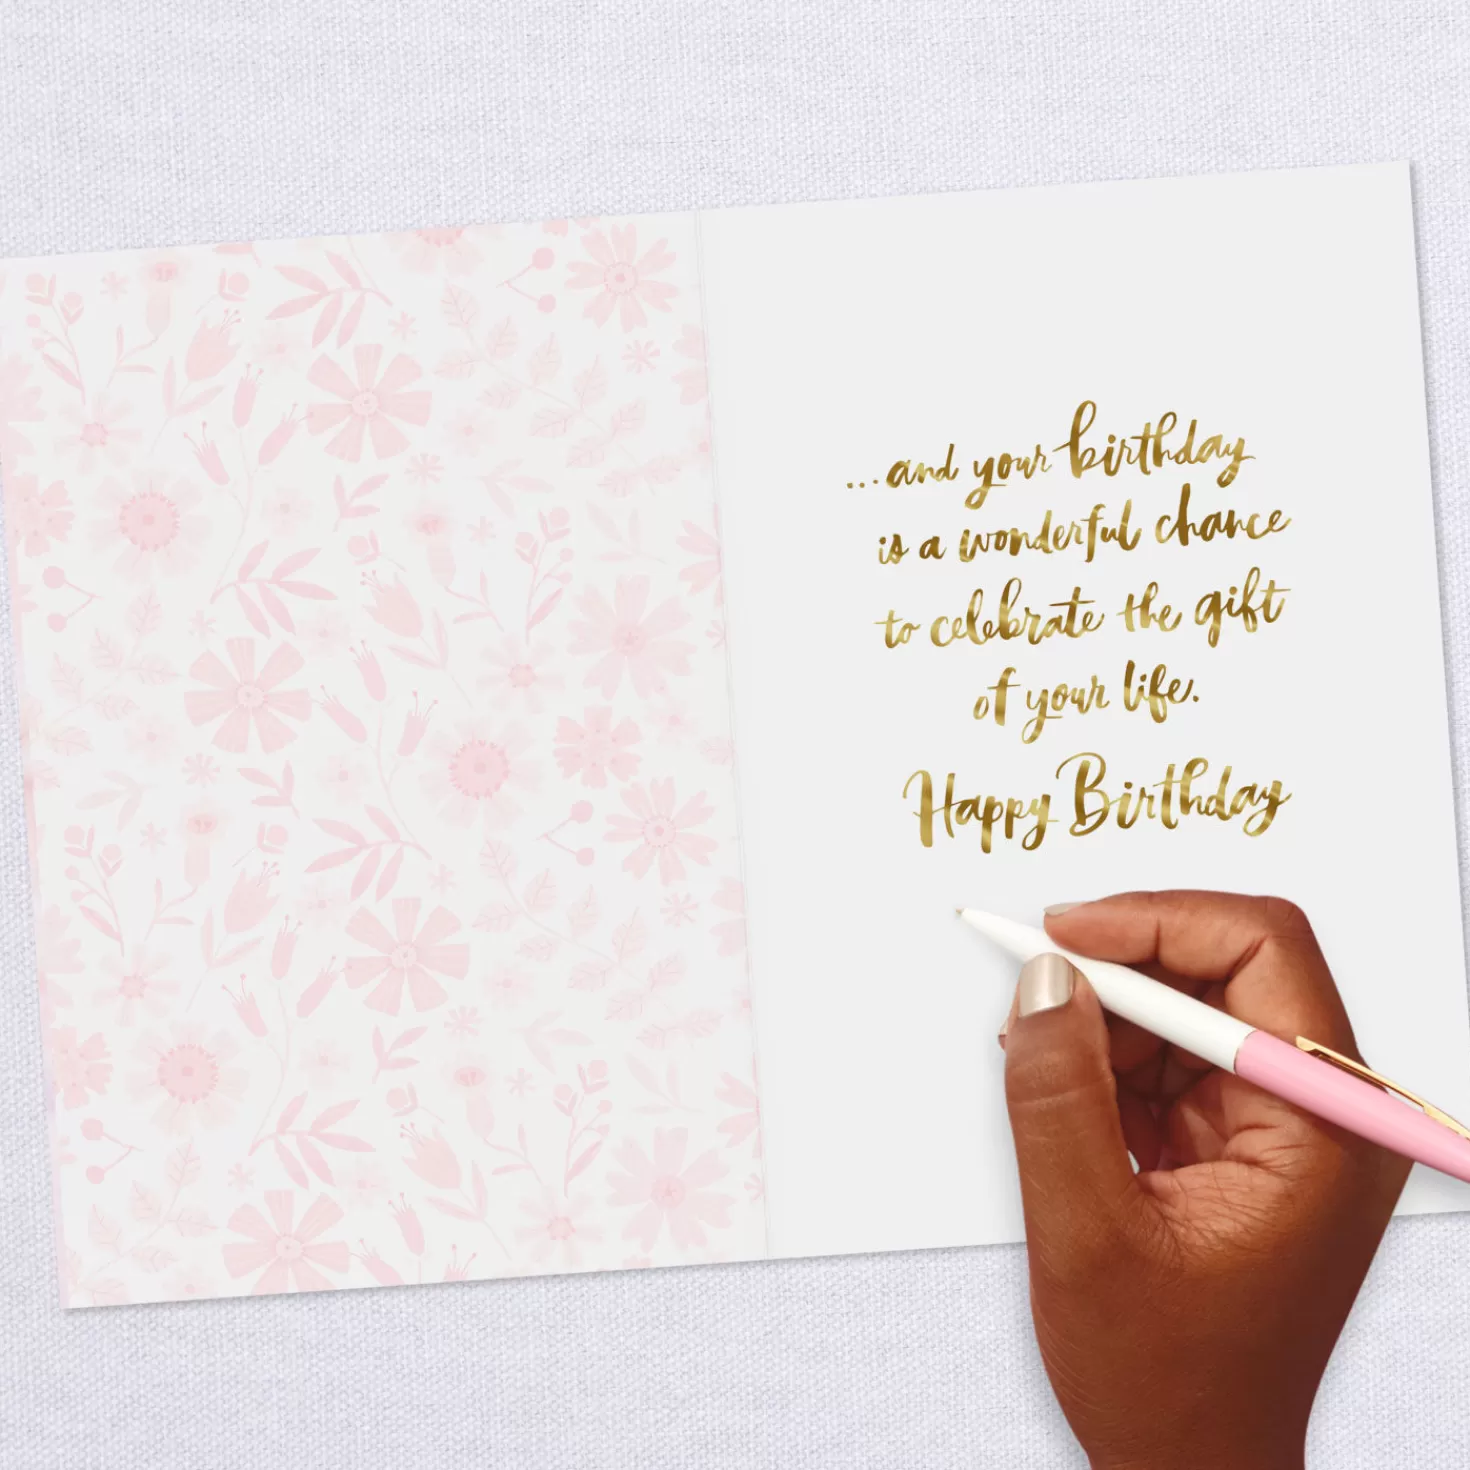 ...and your birthday
is a wonderful chance
to celebrate the gift
of your life.
Happy Birthday